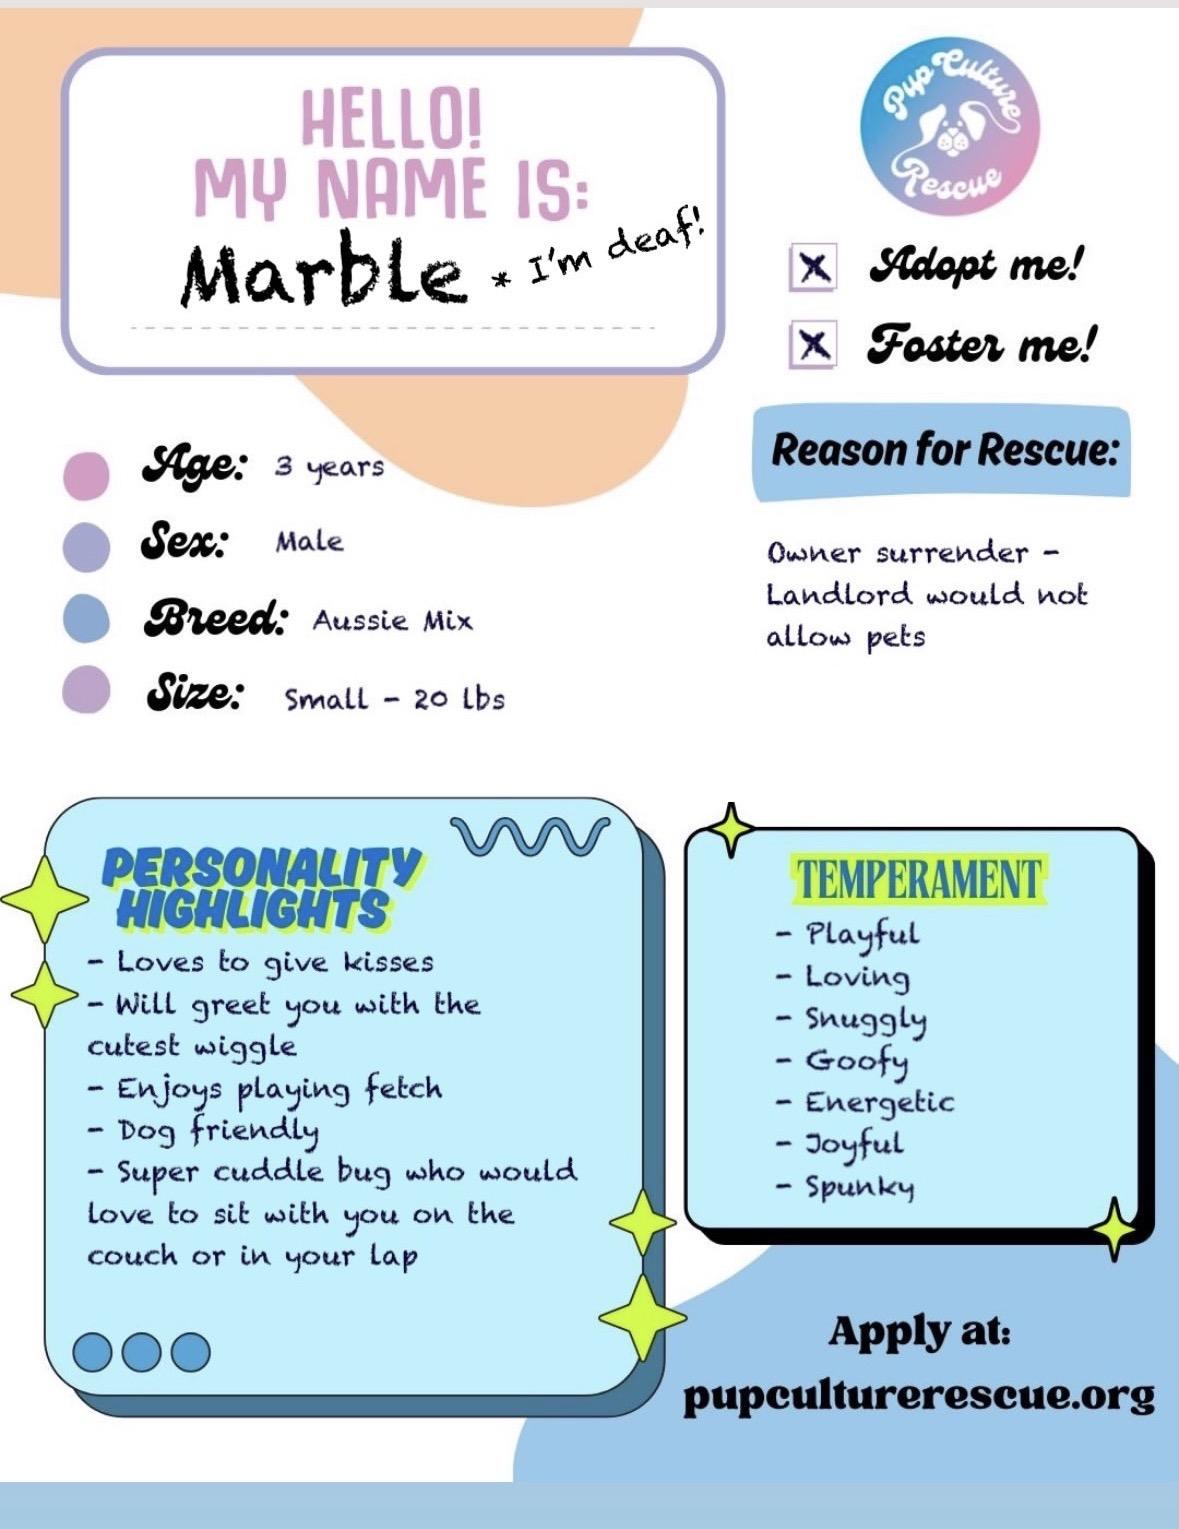 HELLO!
MY NAME IS:
Marble * I'm deaf!
Pup Culture
Rescue
Adopt me!
Foster me!
Reason for Rescue:
Owner surrender -
Landlord would not
allow pets
Age: 3 years
Sex: Male
Breed: Aussie Mix
Size: Small - 20 lbs
PERSONALITY
HIGHLIGHTS
- Loves to give kisses
- Will greet you with the
cutest wiggle
- Enjoys playing fetch
- Dog friendly
- Super cuddle bug who would
love to sit with you on the
couch or in your lap
TEMPERAMENT
- Playful
- Loving
- Snuggly
- Goofy
- Energetic
- Joyful
- Spunky
Apply at:
pupculturerescue.org